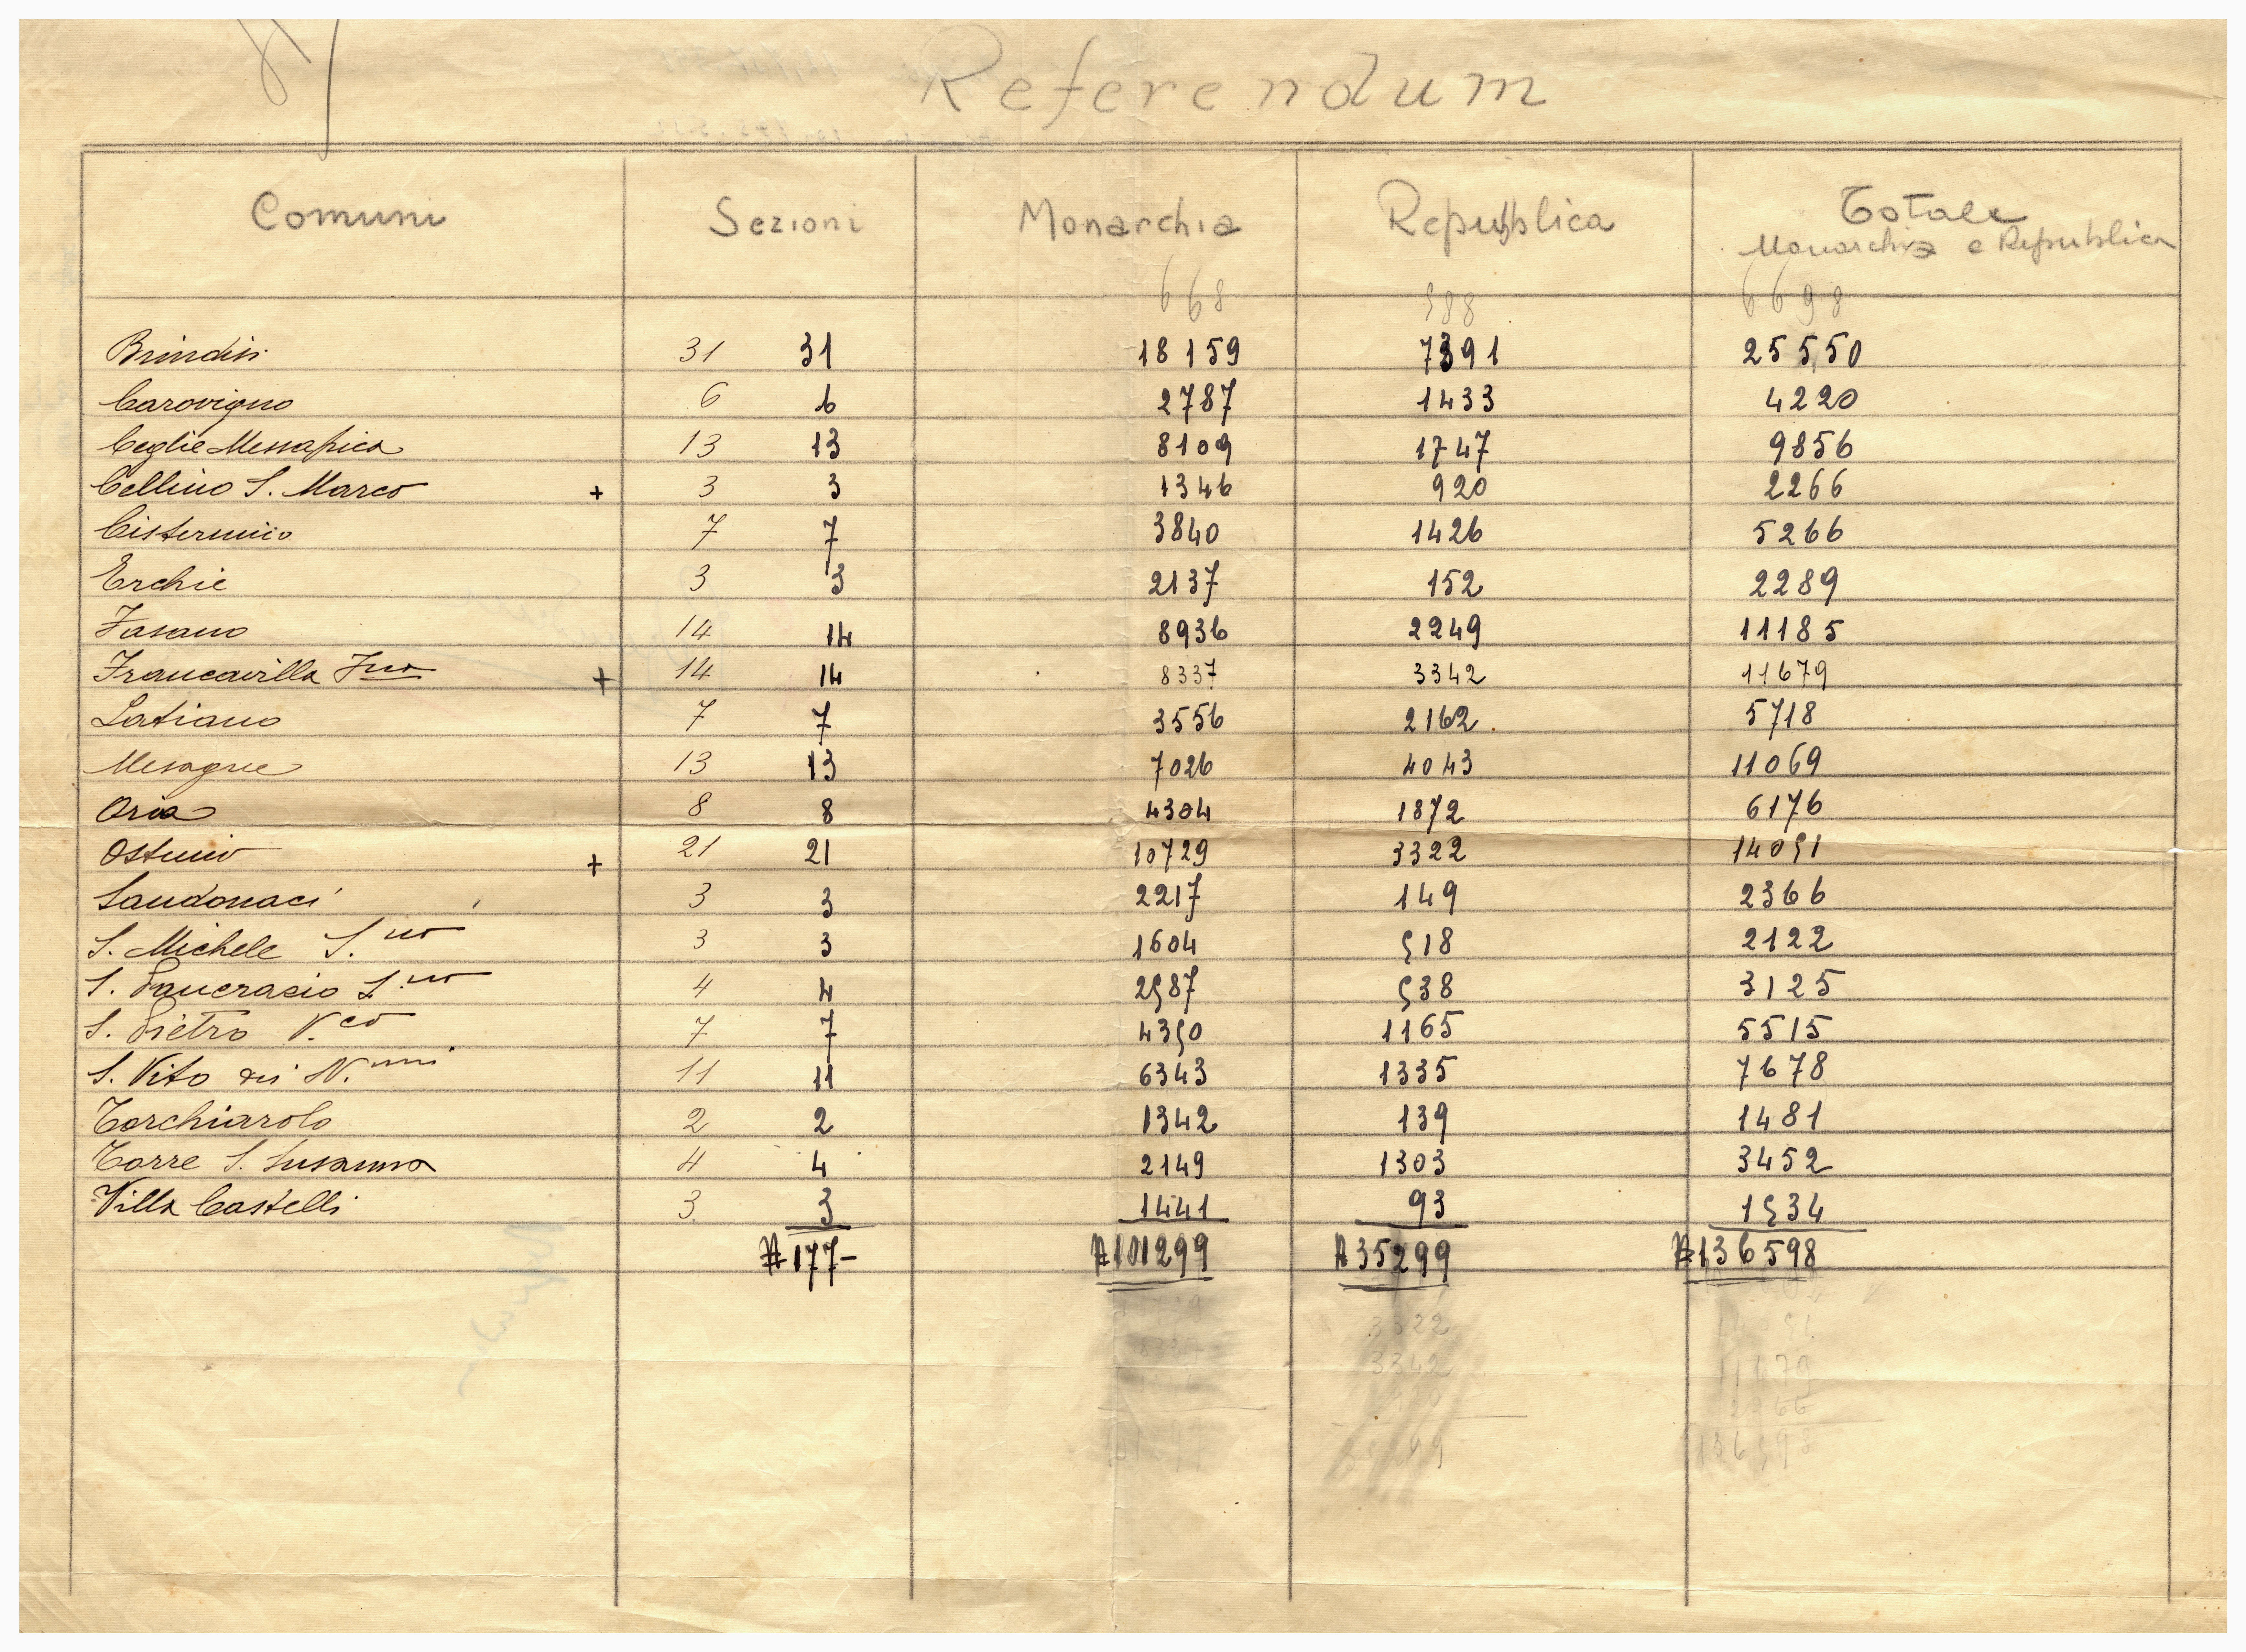 Referendum
Comuni Sezioni Monarchia Repubblica Totale
Monarchia e Repubblica
668 588 6698
Brindisi 31 31 18159 7391 25550
Carovigno 6 6 2787 1433 4220
Ceglie Messapica 13 13 8109 1747 9856
Cellino S. Marco + 3 3 1346 920 2266
Cisternino 7 7 3840 1426 5266
Erchie 3 3 2137 152 2289
Fasano 14 14 8936 2249 11185
Francavilla Fna + 14 14 8337 3342 11679
Latiano 7 7 3556 2162 5718
Mesagne 13 13 7026 4043 11069
Oria 8 8 4304 1872 6176
Ostuni + 21 21 10729 3322 14051
Sandonaci 3 3 2217 149 2366
S. Michele S.no 3 3 1604 518 2122
S. Pancrazio S.no 4 4 2587 538 3125
S. Pietro V.co 7 7 4350 1165 5515
S. Vito dei N.nni 11 11 6343 1335 7678
Torchiarolo 2 2 1342 139 1481
Torre S. Susanna 4 4 2149 1303 3452
Villa Castelli 3 3 1441 93 1534
177- 101299 35299 136598
3322
3342 11679
2266
136598